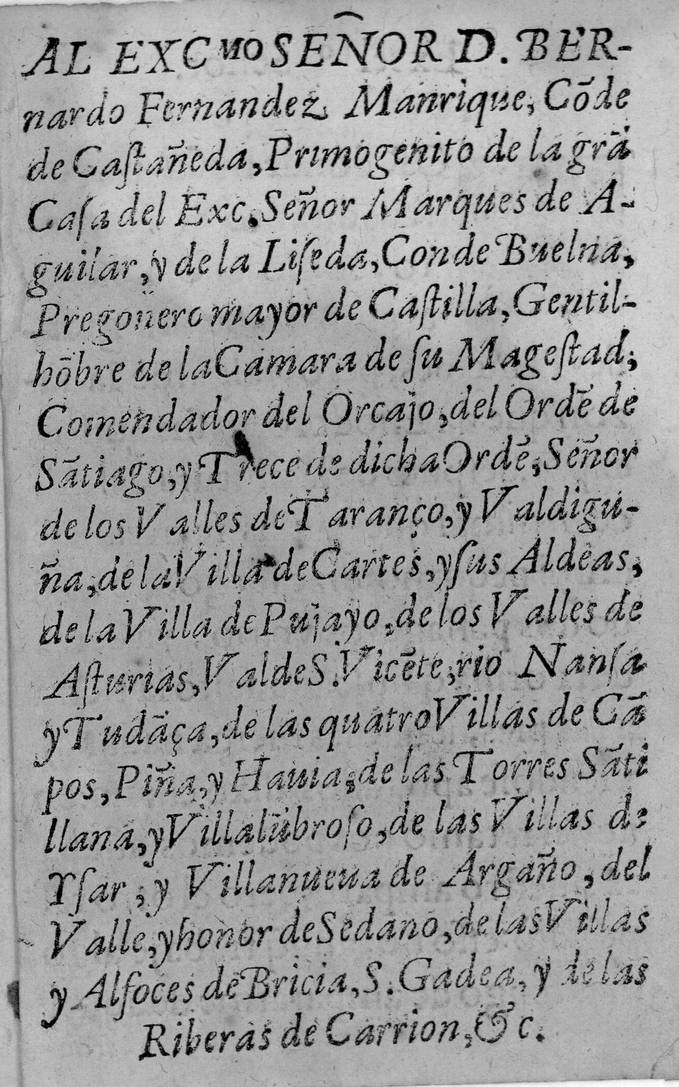 AL EXCᴹᴼ SEÑOR D. BER-
nardo Fernandez Manrique, Cōde
de Caſtañeda, Primogenito de la grā
Caſa del Exc. Señor Marques de A-
guilar, y de la Liſeda, Conde Buelna,
Pregonero mayor de Caſtilla, Gentil-
hōbre de la Camara de ſu Mageſtad,
Comendador del Orcajo, del Ordē de
Sātiago, y Trece de dicha Ordē, Señor
de los Valles de Taranço, y Valdigu-
ña, de la Villa de Cartes, y ſus Aldeas,
de la Villa de Pujayo, de los Valles de
Aſturias, Val de S. Vicēte, rio Nanſa
y Tudāça, de las quatro Villas de Cā
pos, Piña, y Hauia, de las Torres Sāti
llana, y Villalūbroſo, de las Villas de
Yſar, y Villanueua de Argaño, del
Valle, y honor de Sedano, de las Villas
y Alfoces de Bricia, S. Gadea, y de las
Riberas de Carrion, &c.